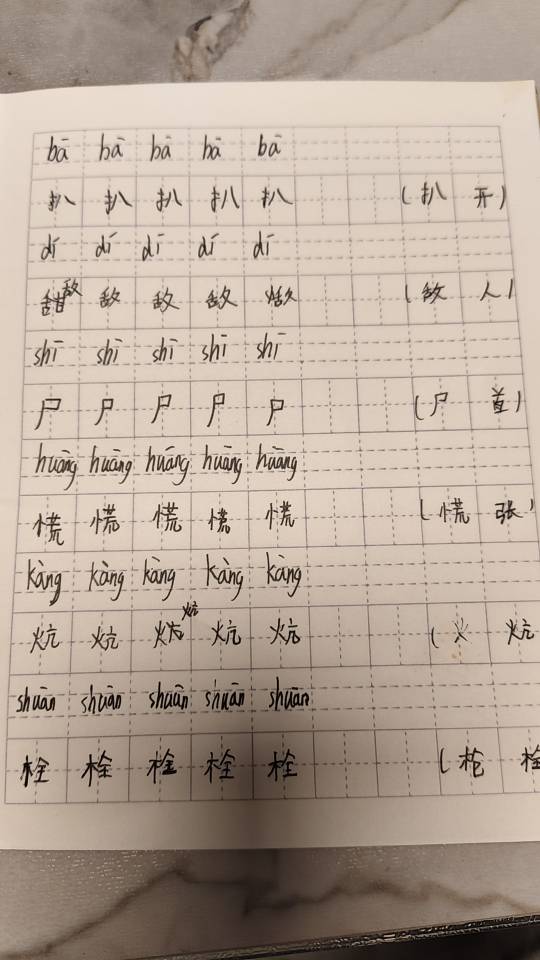 bā bā bā bā bā
扒 扒 扒 扒 扒 (扒 开)
dí dí dí dí dí
敌 敌 敌 敌 (敌 人)
shī shī shī shī shī
尸 尸 尸 尸 尸 (尸 首)
huāng huāng huāng huāng huāng
慌 慌 慌 慌 慌 (慌 张)
kàng kàng kàng kàng kàng
炕 炕 炕 炕 炕 (火 炕
shuān shuān shuān shuān shuān
栓 栓 栓 栓 栓 (枪 栓